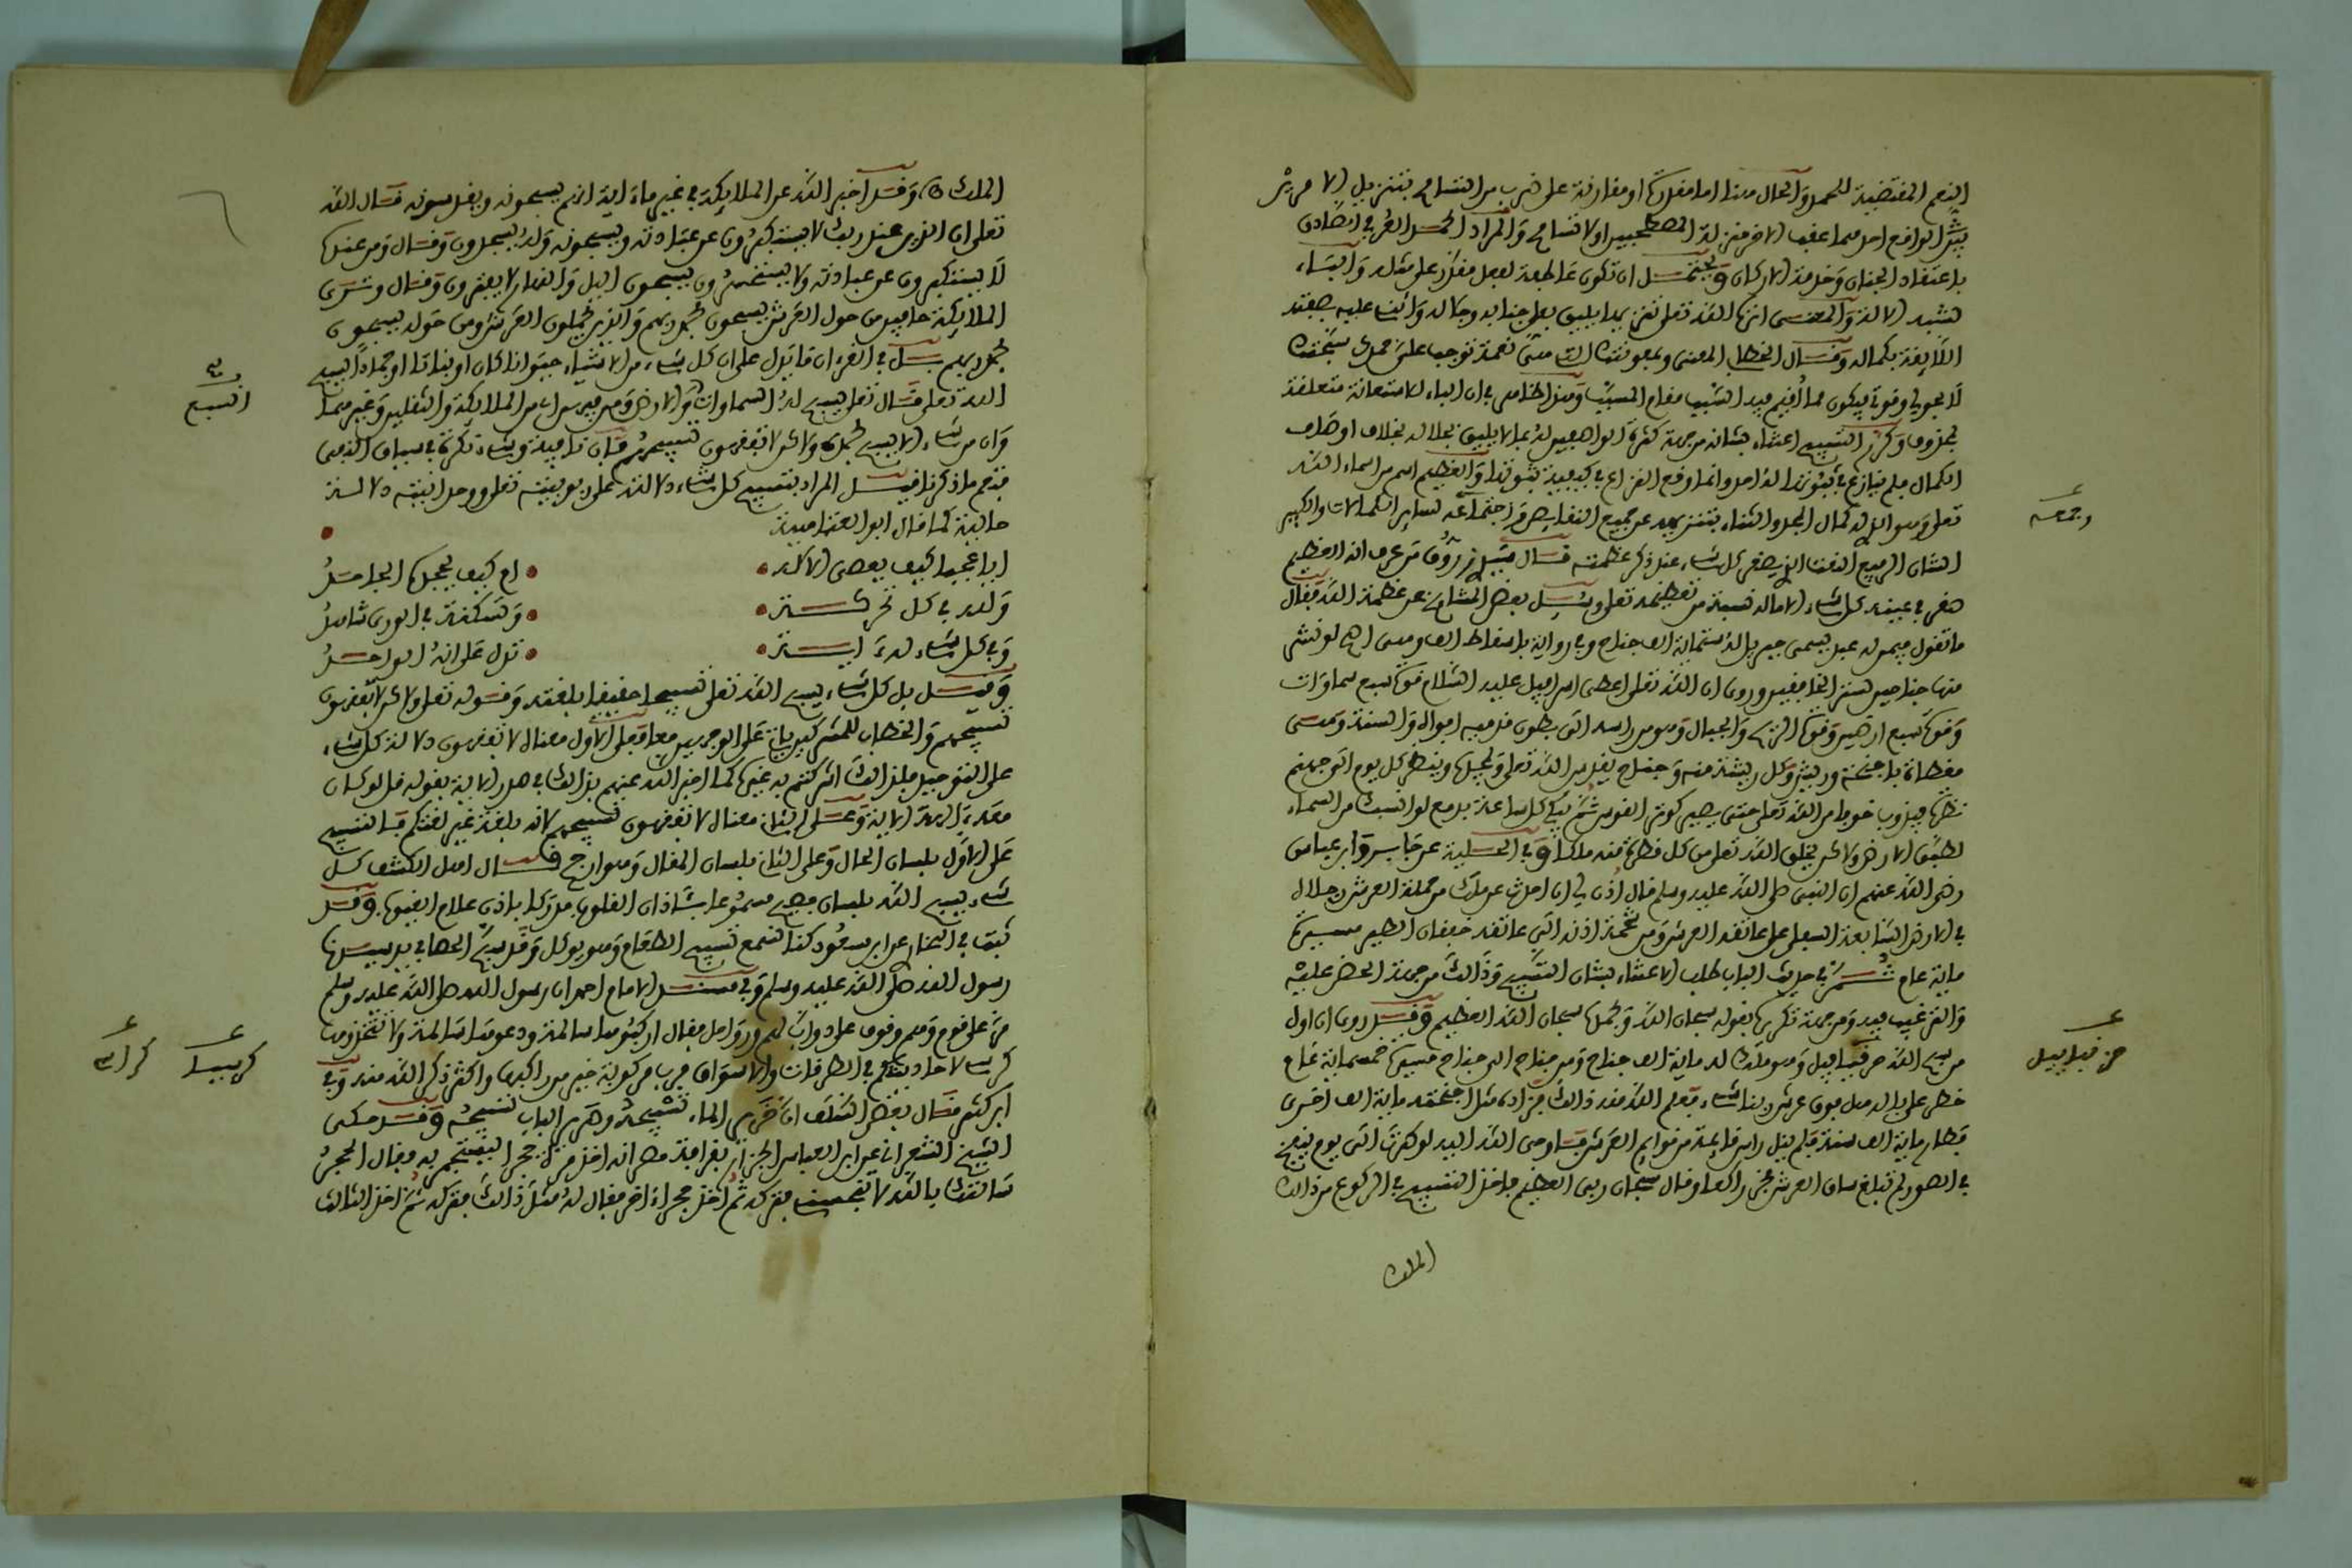 النعم المقتضية للحمل والحال هنا اما مقدرة او مقارنة على ضرب من التسامح بتنزيل الامرين
الواقع احدهما عقب الاخر منزلة المصطحبين اولا تسامح والمراد الحمد العرفي الصادق
باعتقاد الجنان وخدمة الاركان ويحتمل ان تكون عاطفة لفعل مقدر على مثله والباء
والمعنى انزه الله تعلى تنزيها يليق بعلى جنابه وجلاله واثنى عليه بصفته
اللايقة بكماله وقال الخطابي المعنى وبمعونتك التي هي نعمة توجب علي حمدك سبحتك
لا بحولي وقوتي فيكون مما اقيم فيه السبب مقام المسبب وهذا ظاهر في ان الباء للاستعانة متعلقة
بمحذوف وكرر التسبيح اعتناء بشانه من جهة كثرة الواصفين له بما لا يليق بجلاله بخلاف اوصاف
الكمال فلم ينازع في ثبوتها له احد وانما وقع النزاع في كيفية ثبوتها والعظيم اسم من اسماء الله
تعلى وهو الذي له كمال المجد والثناء بتنزيهه عن جميع النقايص واجتماعه لساير الكمالات والكبير
الشان الرفيع القدر الذي يصغر كل شيء عند ذكر عظمته قال الشيخ زروق من عرف انه العظيم
صغر في عينه كل شيء الا ما له نسبة من تعظيمه تعلى وسئل بعض المشايخ عن عظمة الله فقال
ما تقول فيمن له عبد يسمى جبريل له ستماية الف جناح وفي رواية باسقاط الف وهي اصح لو نشر
منها جناحين لستر الخافقين وروى ان الله تعلى اعطى اسرافيل عليه السلام قوة سبع سماوات
وقوة سبع ارضين وقوة الريح والجبال وهو من راسه الى بطون قدميه افواه والسنة وهي
مغطاة باجنحة وريش وكل ريشة منه وجناح يقدس الله تعلى ويمجده وينظر كل يوم الى جهنم
نظرة فيذوب خوفا من الله تعلى حتى يصير كوتر القوس ثم يبكي كل ساعة بدمع لو انسكب من السماء
لطبق الارض ولاكن يخلق الله تعلى من كل قطرة منه ملكا وفي الحلية عن جابر وابن عباس
رضى الله عنهم ان النبي صلى الله عليه وسلم قال اذن لي ان احدث عن ملك من حملة العرش رجلاه
في الارض السابعة السفلى على عاتقه العرش ومن شحمة اذنه الى عاتقه خفقان الطير مسيرة
ماية عام ثم في حديث الباب طلب الاعتناء بشان التسبيح وذالك من جهة الحض عليه
والترغيب فيه ومن جهة تكريره بقوله سبحان الله وبحمده سبحان الله العظيم وقيل روى ان اول
من سبح الله حزقياييل وهو ملك له ماية الف جناح ومن جناح الى جناح مسيرة خمسماية عام
خطر على باله هل فوق عرش ربنا شيء فعلم الله منه ذالك فزاده مثل اجنحته ماية الف اخرى
فطار ماية الف سنة فلم ينل راس قايمة من قوايم العرش فاوحى الله اليه لو طرت الى يوم ينفخ
في الصور لم تبلغ ساق العرش فخر راكعا وقال سبحان ربي العظيم فاخذ التسبيح في الركوع من ذالك
الملك
رجعه
حزقياييل
الملك وقد اخبر الله عن الملايكة في غير ما ءاية انهم يسبحونه ويقدسونه فقال الله
تعلى ان الذين عند ربك لا يستكبرون عن عبادته ويسبحونه وله يسجدون وقال ومن عنده
لا يستكبرون عن عبادته ولا يستحسرون يسبحون اليل والنهار لا يفترون وقال وترى
الملايكة حافين من حول العرش يسبحون بحمد ربهم والذين يحملون العرش ومن حوله يسبحون
بحمد ربهم بل في القرءان ما يدل على ان كل شيء من الاشياء حيوانا كان او نباتا او جمادا يسبح
الله تعلى قال تعلى يسبح له السماوات والارض ومن فيهن اي من الملايكة والثقلين وغيرهما
وان من شيء الا يسبح بحمده ولاكن لا تفقهون تسبيحهم فان نافية وشيء نكرة في سياق النفي
فتعم ما ذكرنا فقيل المراد بتسبيح كل شيء دلالته على ربوبيته تعلى ووحدانيته دلالة
حالية كما قال ابو العتاهية
ايا عجبا كيف يعصى الالـه • ام كيف يجحده الجاحد
ولله في كل تحريكـة • وتسكنة في الورى شاهد
وفي كل شيء له ءايـة • تدل على انه الواحد
وقيل بل كل شيء يسبح الله تعلى تسبيحا حقيقيا بلغته وقوله تعلى ولاكن لا تفقهون
تسبيحهم والخطاب للمشركين باق على الوجهين معا فعلى الاول معناه لا تفقهون دلالة كل شيء
على التوحيد فلذالك اشركتم به غيره كما اخبر الله عنهم بذالك في صدر الاية بقوله قل لو كان
معه ءالهة الاية وعلى الثاني معناه لا تفقهون تسبيحهم لانه بلغة غير لغتكم فالتسبيح
على الاول بلسان الحال وعلى الثاني بلسان المقال وهو ارجح قال اهل الكشف كل
شيء يسبح الله بلسان فصيح مسموعا بئاذان القلوب مدركا باذن علام الغيوب وقد
ثبت في البخاري عن ابن مسعود كنا نسمع تسبيح الطعام وهو يوكل وقد سبح الحصا في يد سيدنا
رسول الله صلى الله عليه وسلم وفي مسند الامام احمد ان رسول الله صلى الله عليه وسلم
مر على قوم وهم وقوف على دواب لهم ورواحل فقال اركبوها سالمة ودعوها سالمة ولا تتخذوها
كراسي لاحاديثكم في الطرقات والاسواق فرب مركوبة خير من راكبها واكثر ذكر الله منه وفي
ابن كثير قال بعض السلف ان خرير الماء تسبيحه وصرير الباب تسبيحه وقد حكى
الشيخ الشعراني عن ابي العباس الجزار بقرافة مصر انه اخذ مرة حجرا ليستجمر به فقال الحجر
سالتك بالله لا تنجسني فتركه ثم اخذ حجرا ءاخر فقال له مثل ذالك فتركه ثم اخذ الثالث
السبع
كرسيا
كراسي